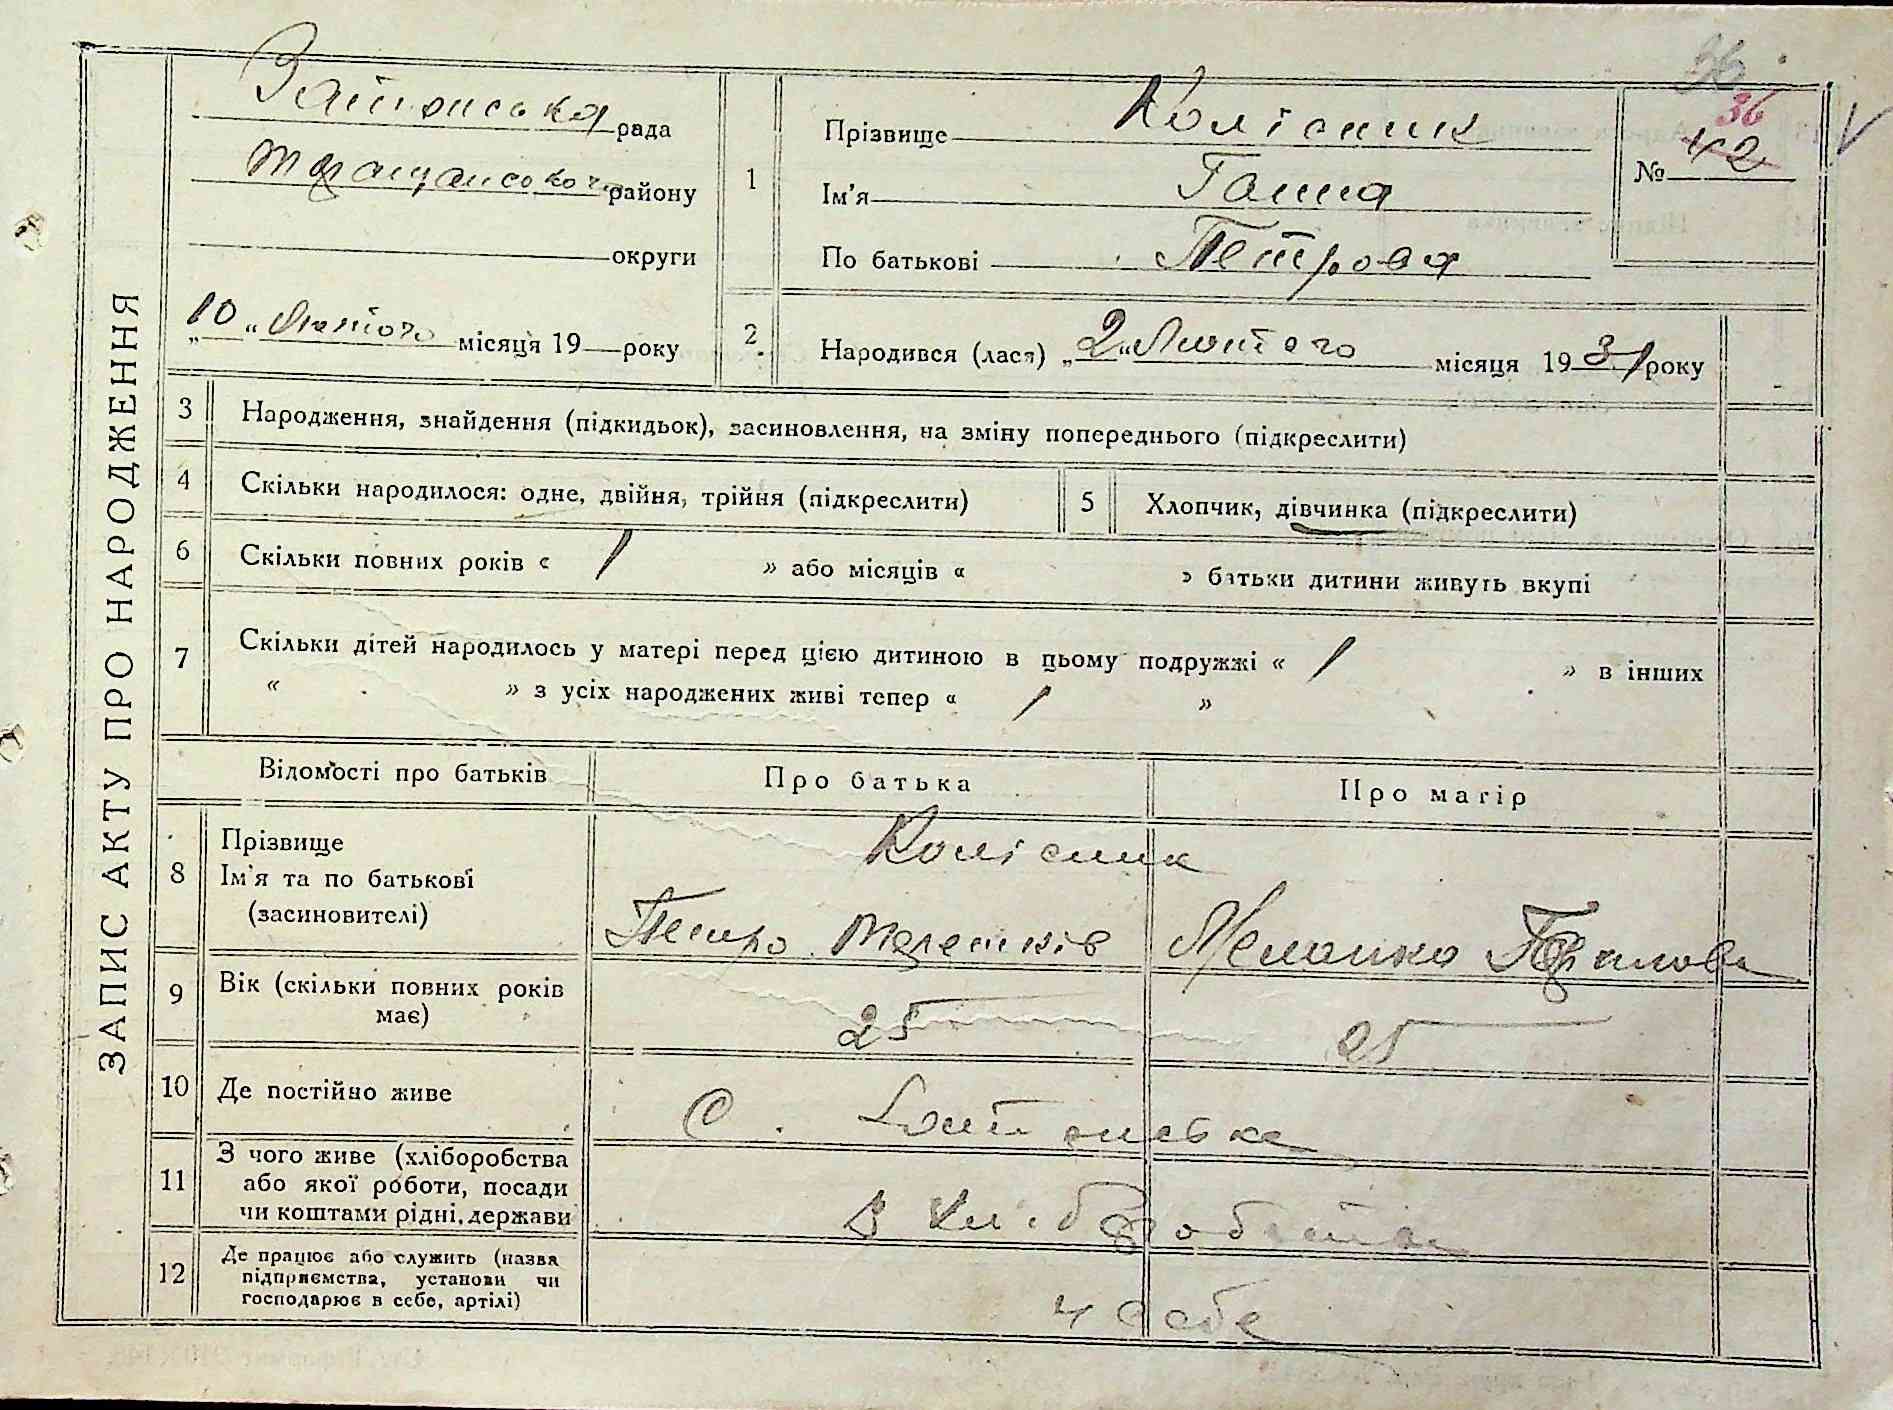 ЗАПИС АКТУ ПРО НАРОДЖЕННЯ
36
рада
району
округи
"10" Лютого місяця 19 року
1
Прізвище Колісник
Ім'я Ганна
По батькові Петрова
36
№ 42
2
Народився (лася) "2" Лютого місяця 1931 року
3 Народження, знайдення (підкидьок), засиновлення, на зміну попереднього (підкреслити)
4 Скільки народилося: одне, двійня, трійня (підкреслити)
5 Хлопчик, дівчинка (підкреслити)
6 Скільки повних років « 1 » або місяців « » батьки дитини живуть вкупі
7 Скільки дітей народилось у матері перед цією дитиною в цьому подружжі « 1 » в інших
« » з усіх народжених живі тепер « 1 »
Відомості про батьків
Про батька
Про матір
8 Прізвище
Ім'я та по батькові
(засиновителі)
Колісник
Петро
Меланка
9 Вік (скільки повних років
має)
25
25
10 Де постійно живе
С.
11 З чого живе (хліборобства
або якої роботи, посади
чи коштами рідні, держави
З хліборобства
12 Де працює або служить (назва
підприємства, установи чи
господарює в себе, артілі)
у себе